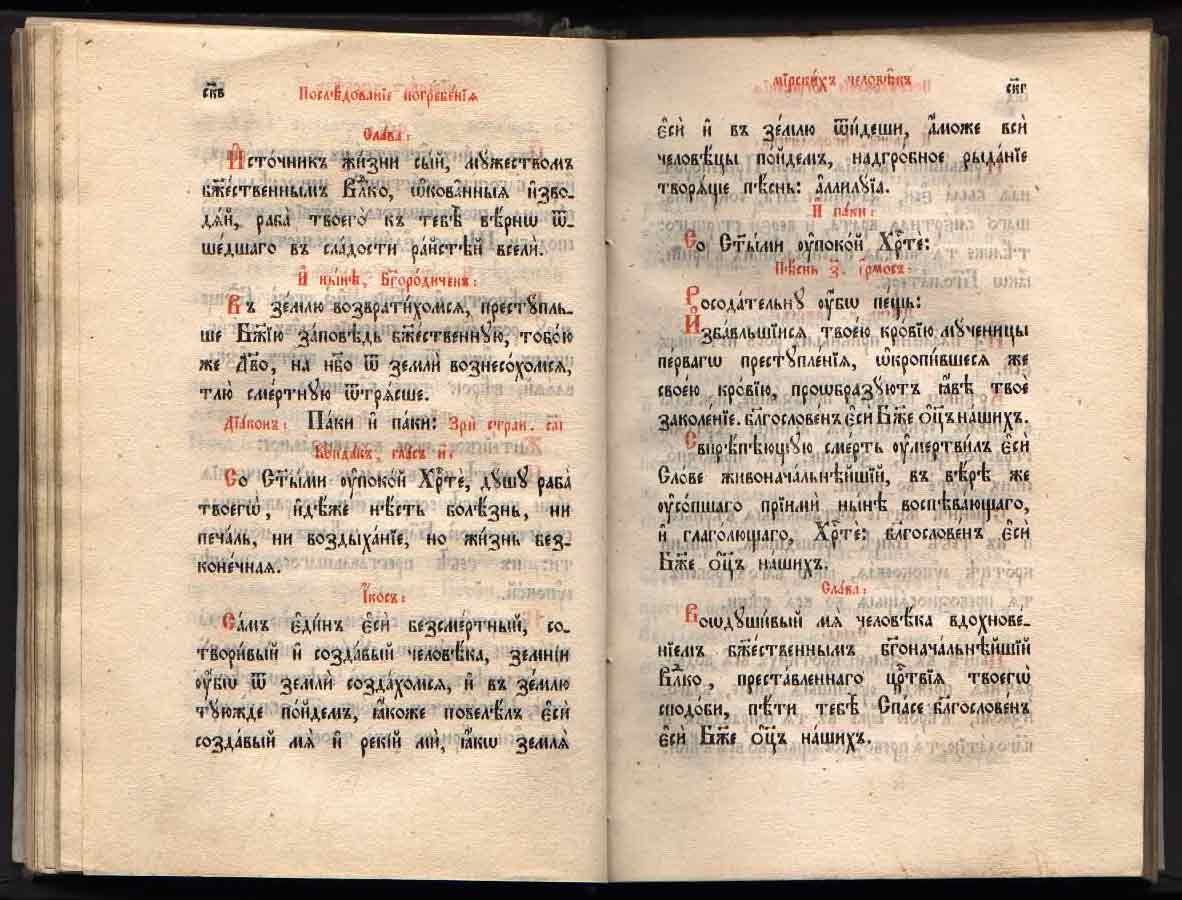 скв҃
Послѣдованїе погребенїѧ
Сла́ва:
И҆сто́чник жи́зни сы́й, мꙋ́жеством
бж҃е́ственнымъ Влⷣко, ѡ҆кова̑нныѧ и҆зво-
дѧ́й, раба̀ твоего̀ къ тебѣ̀ вѣ́рнѡ ѿ-
ше́дшаго въ сла́дости ра́йстѣй вселѝ.
И҆ ны́нѣ, Бг҃оро́диченъ:
Въ зе́млю возврати́хомсѧ, престꙋ́пль-
ше Бж҃їю за́повѣдь бж҃е́ственнꙋю, тобо́ю
же Дв҃о, на нб҃о ѿ землѝ вознесо́хомсѧ,
тлю̀ сме́ртнꙋю ѿтрѧ́сше.
Дїа́конъ: Па́ки и҆ па́ки: Зрѝ стран. саі
Конда́къ, гла́съ и҃:
Со ст҃ы́ми ᲂу҆поко́й Хрⷭ҇тѐ, дꙋ́шꙋ раба̀
твоегѡ̀, и҆дѣ́же нѣ́сть болѣ́знь, ни
печа́ль, ни воздыха́нїе, но жи́знь без-
коне́чнаѧ.
І҆́косъ:
Са́мъ є҆ди́нъ є҆сѝ безсме́ртный, со-
твори́вый и҆ созда́вый человѣ́ка, земні́и
ᲂу҆́бѡ ѿ землѝ созда́хомсѧ, и҆ въ зе́млю
тꙋ́южде по́йдемъ, ꙗ҆́коже повелѣ́лъ є҆сѝ
созда́вый мѧ̀ и҆ реки́й мѝ, ꙗ҆́кѡ землѧ̀
мїрски́хъ человѣ́къ
скг҃
є҆сѝ и҆ въ зе́млю ѿи́деши, а҆́може всѝ
человѣ́цы по́йдемъ, надгро́бное рыда́нїе
творѧ́ще пѣ́снь: а҆ллилꙋ́їа.
И҆ па́ки:
Со Ст҃ы́ми ᲂу҆поко́й Хрⷭ҇тѐ:
Пѣ́снь з҃. І҆рмо́съ:
Росода́тельнꙋ ᲂу҆́бѡ пе́щь:
И҆зба́вльшїисѧ твое́ю кро́вїю мꙋ́ченицы
пе́рвагѡ престꙋпле́нїѧ, ѡ҆кропи́вшесѧ же
свое́ю кро́вїю, проѡбразꙋ́ютъ ꙗ҆́вѣ твоѐ
заколе́нїе. блг҃ослове́нъ є҆сѝ Бж҃е ѻ҆ц҃ъ на́шихъ.
Свирѣпѣ́ющꙋю сме́рть ᲂу҆мертви́лъ є҆сѝ
Сло́ве живонача́льнѣйшїй, въ вѣ́рѣ же
ᲂу҆со́пшаго прїимѝ ны́нѣ воспѣва́ющаго,
и҆ глаго́лющаго, Хрⷭ҇тѐ: блг҃ослове́нъ є҆сѝ
Бж҃е ѻ҆ц҃ъ на́шихъ.
Сла́ва:
Воѡдꙋши́вый мѧ̀ человѣ́ка вдохнове́-
нїемъ бж҃е́ственнымъ бг҃онача́льнѣйшїй
Влⷣко, преста́вленнаго црⷭ҇твїѧ твоегѡ̀
сподо́би, пѣ́ти тебѣ̀ Сп҃се блг҃ослове́нъ
є҆сѝ Бж҃е ѻ҆ц҃ъ на́шихъ.